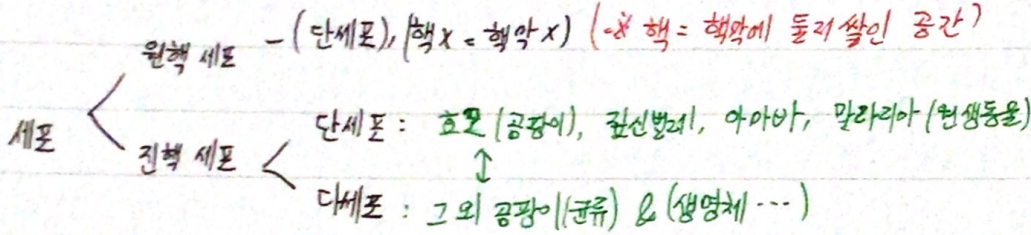 원핵 세포 - (단세포), (핵 x = 핵막 x) (※ 핵 = 핵막에 둘러 쌓인 공간)
세포
단세포 : 효모 (곰팡이), 짚신벌레, 아마바, 말라리아 (원생동물)
진핵 세포
↕
다세포 : 그 외 곰팡이(균류) & (생명체 ...)